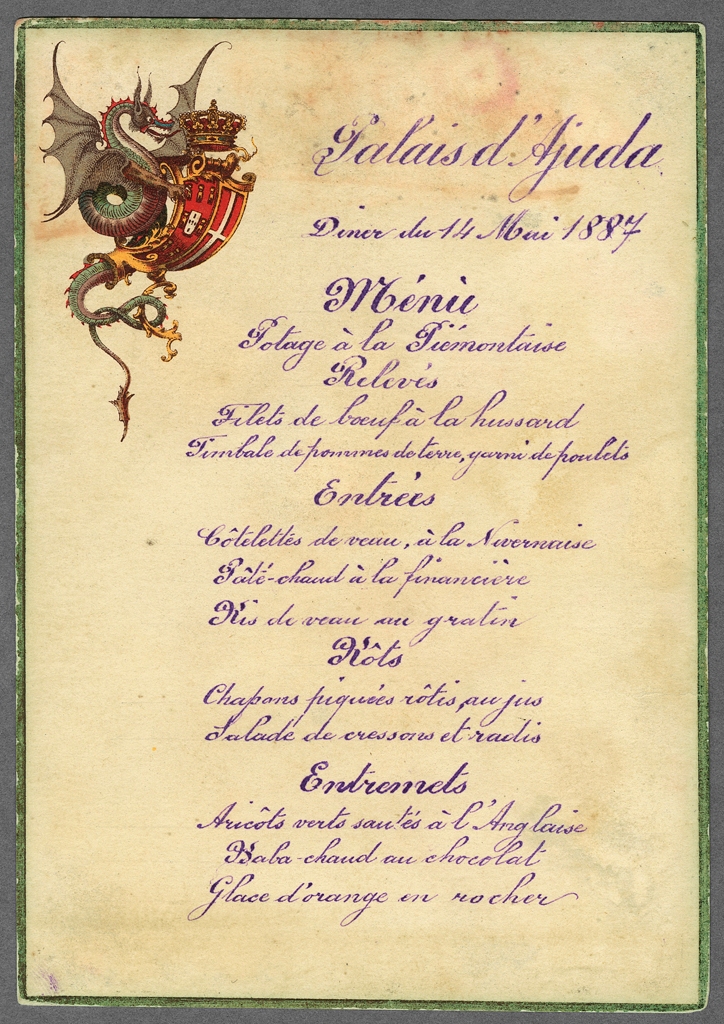 Palais d'Ajuda
Diner du 14 Mai 1887
Ménu
Potage à la Piémontaise
Relevés
Filets de bœuf à la hussard
Timbale de pommes de terre, garni de poulets
Entrées
Côtelettes de veau, à la Nivernaise
Pâté-chaud à la financière
Ris de veau au gratin
Rôts
Chapons piquées rôtis, au jus
Salade de cressons et radis
Entremets
Aricôts verts sautés à l'Anglaise
Baba-chaud au chocolat
Glace d'orange en rocher